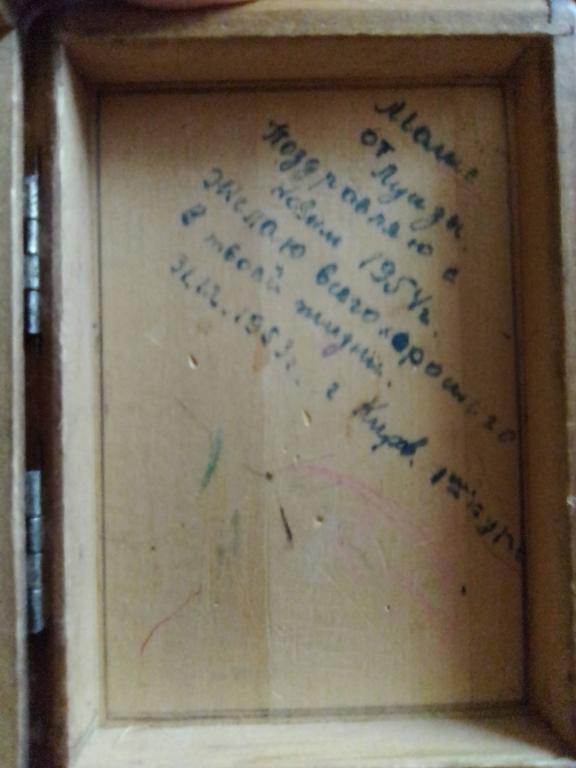 от Луизы
Поздравляю с
новым 1954г.
Желаю всего хорошего
в твоей жизни.
31.12.1953г. г Киров.